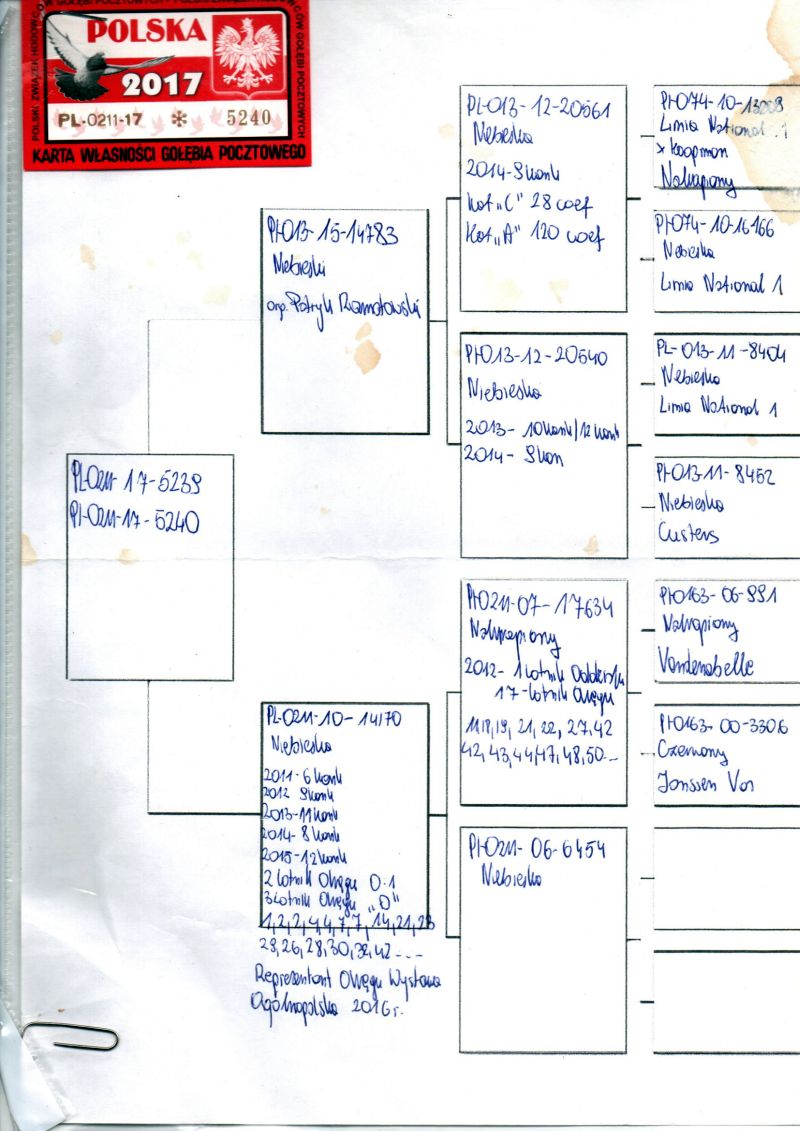 POLSKI ZWIĄZEK HODOWCÓW GOŁĘBI POCZTOWYCH
POLSKA
2017
PL-0211-17 * 5240
KARTA WŁASNOŚCI GOŁĘBIA POCZTOWEGO
PL-0211-17-5239
PL-0211-17-5240
PL-013-15-14783
Niebieski
oryg. Patryk Romatowski
PL-0211-10-14170
Niebieska
2011-6 konk
2012 9konk
2013-11konk
2014-8 konk
2015-12konk
2 Lotnik Okręgu O.1
3 Lotnik Okręgu "O"
1,2,2,4,4,7,7,14,21,23
28,26,28,30,32,42...
Reprezentant Okręgu Wystawa
Ogólnopolska 2016r.
PL-013-12-20561
Niebieska
2014-9konk
Kat „C" 28 coef
Kat „A" 120 coef
PL-013-12-20540
Niebieska
2013-10konk/12konk
2014-9kon
PL-0211-07-17634
Nakrapiony
2012-1 Lotnik
17-lotnik Okręgu
11,18,19, 21, 22, 27,42
42,43,44,47,48,50...
PL-0211-06-6454
Niebieska
PL-074-10-13009
Linia National 1
x Koopman
Nakrapiony
PL-074-10-16166
Niebieska
Linia National 1
PL-013-11-8404
Niebieska
Linia National 1
PL-013-11-8452
Niebieska
Custers
PL-0163-06-991
Nakrapiony
Vandenabelle
PL-0163-00-3306
Czerwony
Janssen Vos